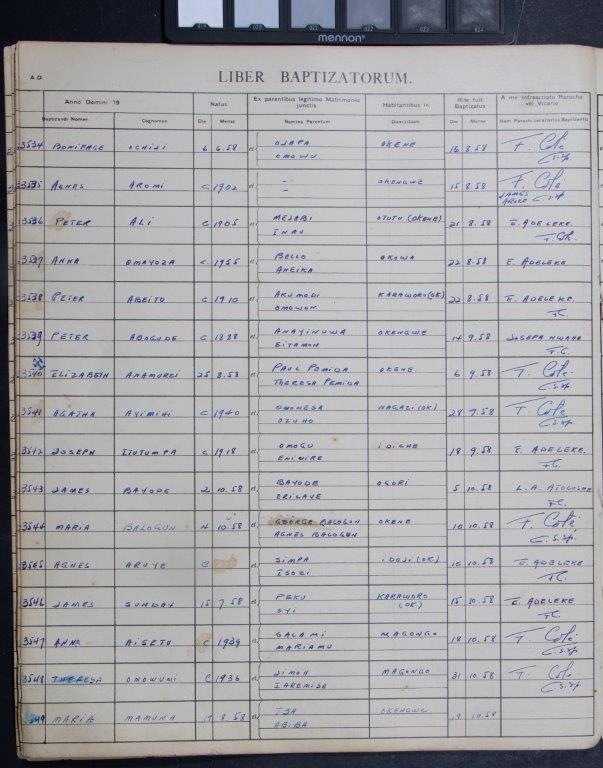 mennon
LIBER BAPTIZATORUM.
A.D.
Anno Domini 19 Natus Ex parentibus legitimo Matrimonio junctis Habitantibus in Rite fuit Baptizatus A me infrascripto Parocho vel Vicario
Baptizandi Nomen Cognomen Die Mense Nomina Parentum Domicilium Die Mense
3534 BONIFACE OCHIJI 6 6.58 et OJAPA OKENE 16 8.58 F. Coté
OMOWU C.S.Sp.
3535 AGNES AROMI C 1902 et OKENGWE 15 8.58 F. Coté
JAMES C.S.Sp.
3536 PETER ALI C 1905 et MEJABI OTUTU (OKENE) 21 8.58 E. ADELEKE
INAU F. Cté.
3537 ANNA OMAYOZA C. 1955 et BELLO OKOWA 22 8.58 E. ADELEKE
AHEIKA
3538 PETER ABEITO C 1910 et AKUMODI KARAWORO (OK) 22 8.58 E. ADELEKE
OMOWON F.C.
3539 PETER ABOGUDE C 1888 et ANAYINUWA OKENGWE 14 9.58
EITAMOH F.C.
3540 ELIZABETH ANAMUREI 25 8.58 et PAUL PEMIDA OKENE 6 9.58 F. Coté.
THERESA PEMIDA C.S.Sp.
3541 AGATHA AYIMIHI C 1940 et OMONESA NAGAZI (OK.) 28 7.58 F. Coté
OZUHO C.S.Sp.
3542 JOSEPH ITUTUMPA C 1918 et OMOGU IDICHE 18 9.58 E. ADELEKE.
ENIMIRE F.C.
3543 JAMES BAYODE 2 10.58 et BAYODE OGORI 5 10.58 L.A.
F.C.
3544 MARIA BALOGUN 4 10.58 et GEORGE BALOGUN OKENE 10 10.58 F. Coté,
AGNES BALOGUN C.S.Sp.
3545 AGNES ARUYE C et SIMPA IDOJI (OK.) 10 10.58 E. ADELEKE
ISOZI F.C.
3546 JAMES SUNDAY 15 7.58 et PEKU KARAWORO (OK.) 15 10.58 E. ADELEKE
OYI F.C.
3547 ANNA AISETU C 1939 et SALAMI MAGONGO 18 10.58 F. Coté
MARIAMU C.S.Sp.
3548 THERESA OMOWUMI C 1936 et JIMOH MAGONGO 31 10.58 F. Coté
IAREMIDE C.S.Sp.
49 MARIA MAMUNA 17 8.58 et ISA OKENGWE 19 10.58
ABIBA